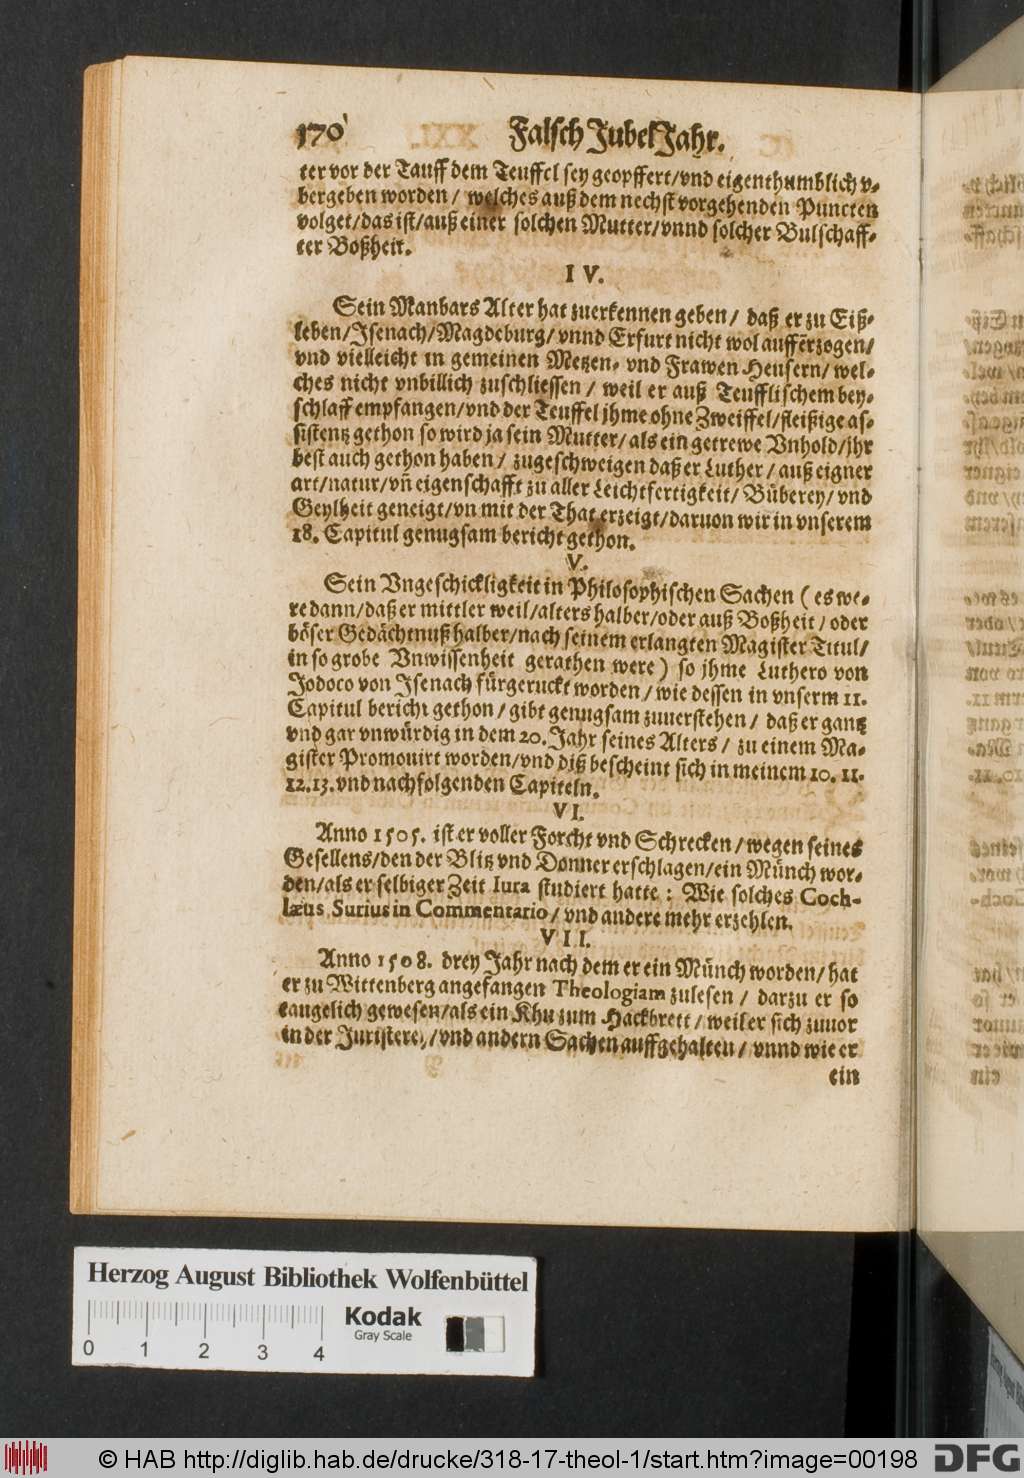 170 Falsch JubelJahr.
ter vor der Tauff dem Teuffel sey geopffert/vnd eigenthumblich v-
bergeben worden/ welches auß dem nechst vorgehenden Puncten
volget/das ist/auß einer solchen Mutter/vnnd solcher Bulschaff-
ter Boßheit.
IV.
Sein Manbars Alter hat zuerkennen geben/ daß er zu Eiß-
leben/Jsenach/Magdeburg/vnnd Erfurt nicht wol aufferzogen/
vnd vielleicht in gemeinen Metzen- vnd Frawen Heusern/ wel-
ches nicht vnbillich zuschliessen/ weil er auß Teufflischem bey-
schlaff empfangen/vnd der Teuffel jhme ohne Zweiffel/fleißige as-
sistentz gethon so wird ja sein Mutter/als ein getrewe Vnhold/jhr
best auch gethon haben/ zugeschweigen daß er Luther/ auß eigner
art/natur/vñ eigenschafft zu aller Leichtfertigkeit/ Büberey/ vnd
Geylheit geneigt/vn mit der That erzeigt/daruon wir in vnserem
18. Capitul genugsam bericht gethon.
V.
Sein Vngeschickligkeit in Philosophischen Sachen (es we-
re dann/daß er mittler weil/alters halber/oder auß Boßheit/oder
böser Gedächtnuß halber/nach seinem erlangten Magister Titul/
in so grobe Vnwissenheit gerathen were) so jhme Luthero von
Jodoco von Jsenach fürgeruckt worden/wie dessen in vnserm 11.
Capitul bericht gethon/gibt genugsam zuuerstehen/ daß er gantz
vnd gar vnwürdig in dem 20. Jahr seines Alters/ zu einem Ma-
gister Promouirt worden/vnd diß bescheint sich in meinem 10. 11.
12.13. vnd nachfolgenden Capiteln.
VI.
Anno 1505. ist er voller Forcht vnd Schrecken/wegen seines
Gesellens/den der Blitz vnd Donner erschlagen/ein Münch wor-
den/als er selbiger Zeit Iura studiert hatte: Wie solches Coch-
læus Surius in Commentario/vnd andere mehr erzehlen.
VII.
Anno 1508. drey Jahr nach dem er ein Münch worden/hat
er zu Wittenberg angefangen Theologiam zulesen/ darzu er so
taugelich gewesen/als ein Khu zum Hackbrett/weil er sich zuuor
in der Juristerey/vnd andern Sachen auffgehalten/ vnnd wie er
ein
Herzog August Bibliothek Wolfenbüttel
Kodak
Gray Scale
0 1 2 3 4
© HAB http://diglib.hab.de/drucke/318-17-theol-1/start.htm?image=00198 DFG